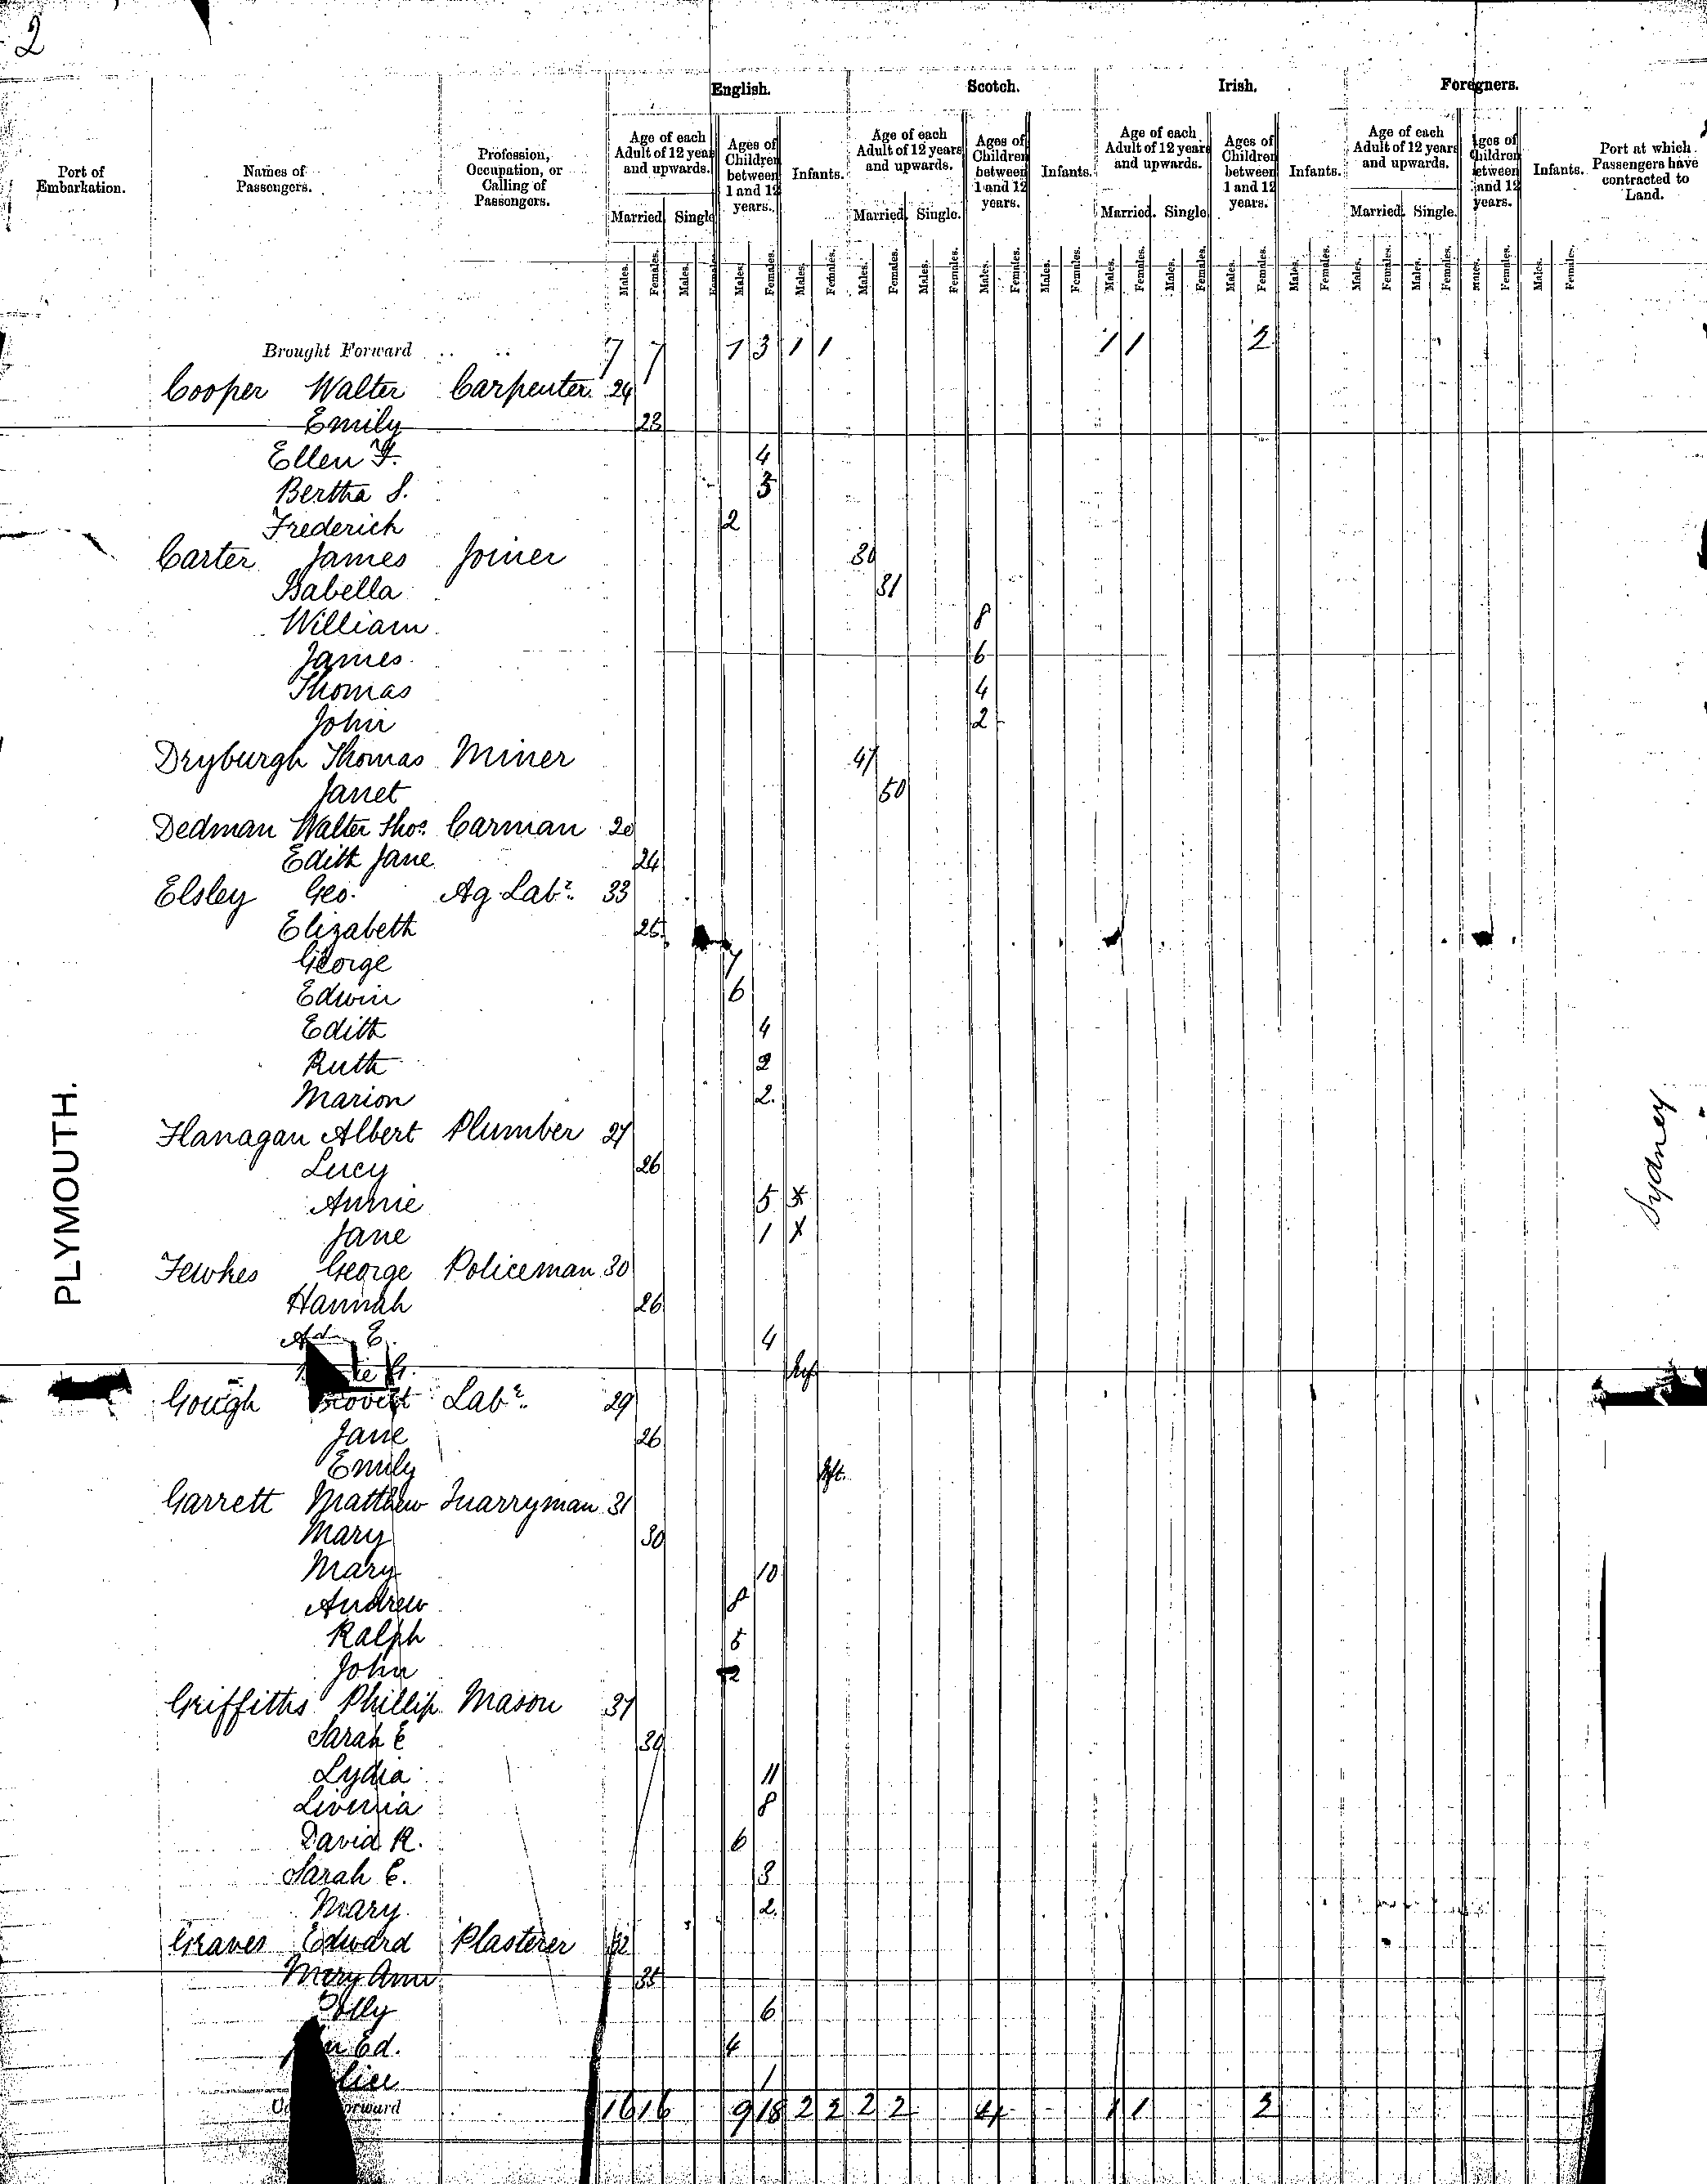 2
English. Scotch. Irish. Foreigners.
Port of Embarkation. Names of Passengers. Profession, Occupation, or Calling of Passengers. Age of each Adult of 12 years and upwards. Ages of Children between 1 and 12 years. Infants. Age of each Adult of 12 years and upwards. Ages of Children between 1 and 12 years. Infants. Age of each Adult of 12 years and upwards. Ages of Children between 1 and 12 years. Infants. Age of each Adult of 12 years and upwards. Ages of Children between 1 and 12 years. Infants. Port at which Passengers have contracted to Land.
Married. Single. Married. Single. Married. Single. Married. Single.
Males. Females. Males. Females. Males. Females. Males. Females. Males. Females. Males. Females. Males. Females. Males. Females. Males. Females. Males. Females. Males. Females. Males. Females. Males. Females. Males. Females. Males. Females. Males. Females.
Brought Forward .. .. 7 7 1 3 1 1 1 1 2
Cooper Walter Carpenter 24
Emily 23
Ellen F. 4
Bertha S. 3
Frederich 2
Carter James Joiner 30
Isabella 31
William 8
James 6
Thomas 4
John 2
Dryburgh Thomas Miner 47
Janet 50
Dedman Walter Thos. Carman 20
Edith Jane 24
Elsley Geo. Ag. Labr. 33
Elizabeth 25
George 7
Edwin 6
Edith 4
Ruth 2
Marion 2
Flanagan Albert Plumber 27
Lucy 26
Annie 5 x
Jane 1 x
Fewkes George Policeman 30
Hannah 26
E. 4
Inf
Gough Labr. 29
Jane 26
Emily Inft.
Garrett Matthew Quarryman 31
Mary 30
Mary 10
Andrew 8
Ralph 5
John 2
Griffiths Phillip Mason 37
Sarah E 39
Lydia 11
Livinia 8
David R. 6
Sarah E. 3
Mary 2
Graves Edward Plasterer 32
Mary Ann 35
Polly 6
Ed. 4
1
forward 16 16 9 18 2 2 2 2 4 1 1 2
PLYMOUTH.
Sydney